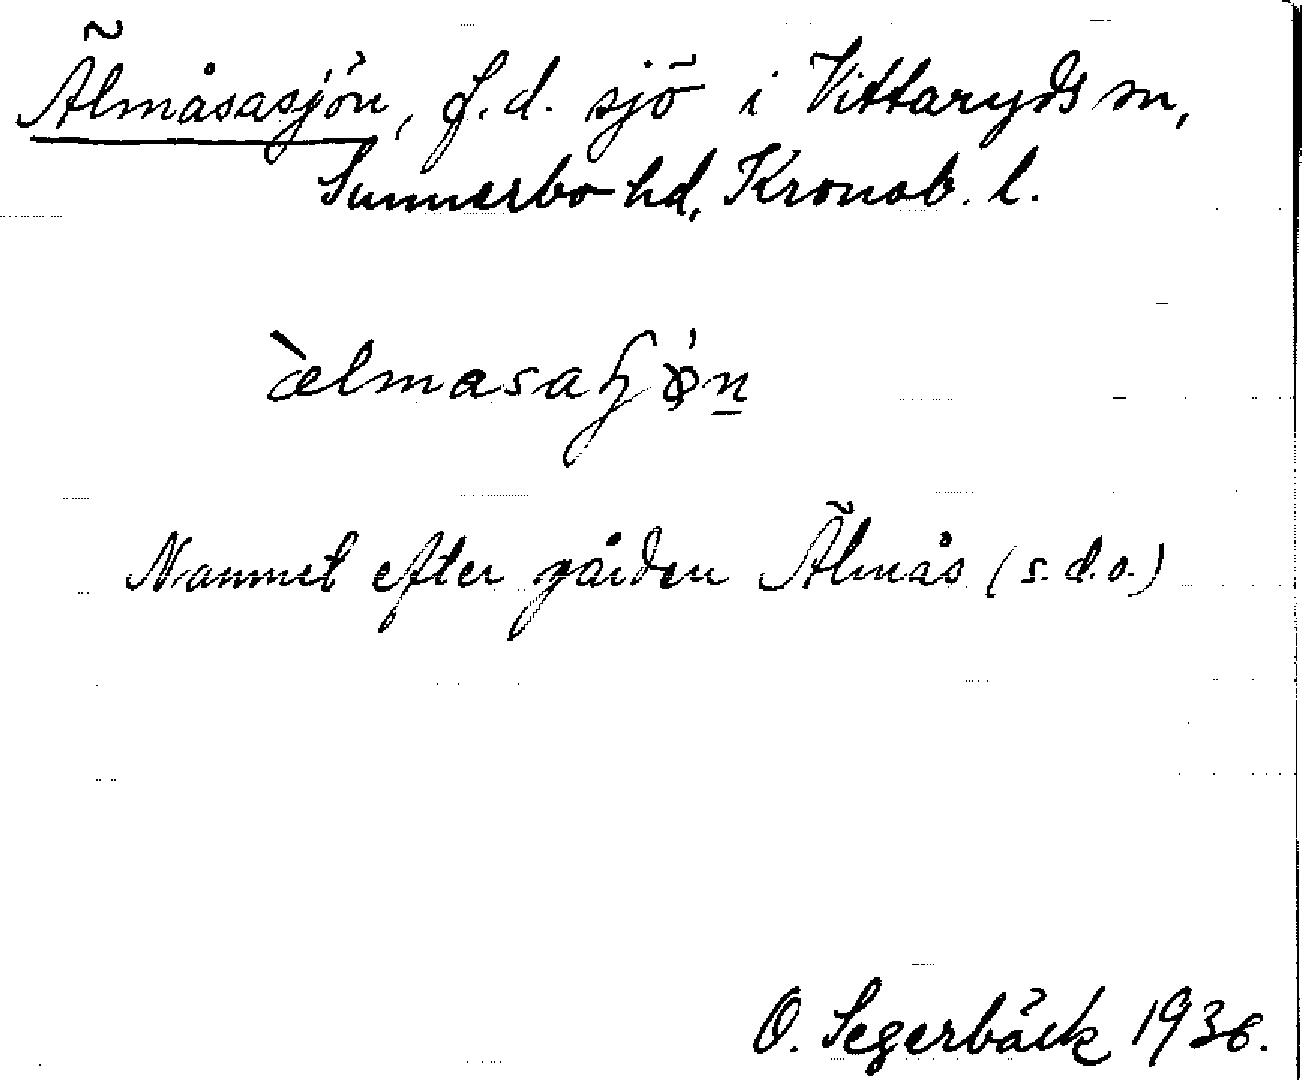 Älmåsasjön, f.d. sjö i Vittaryds sn,
Sunnerbo hd, Kronob. l.
Namnet efter gården Älmås (s.d.o.)
O. Segerbäck 1936.